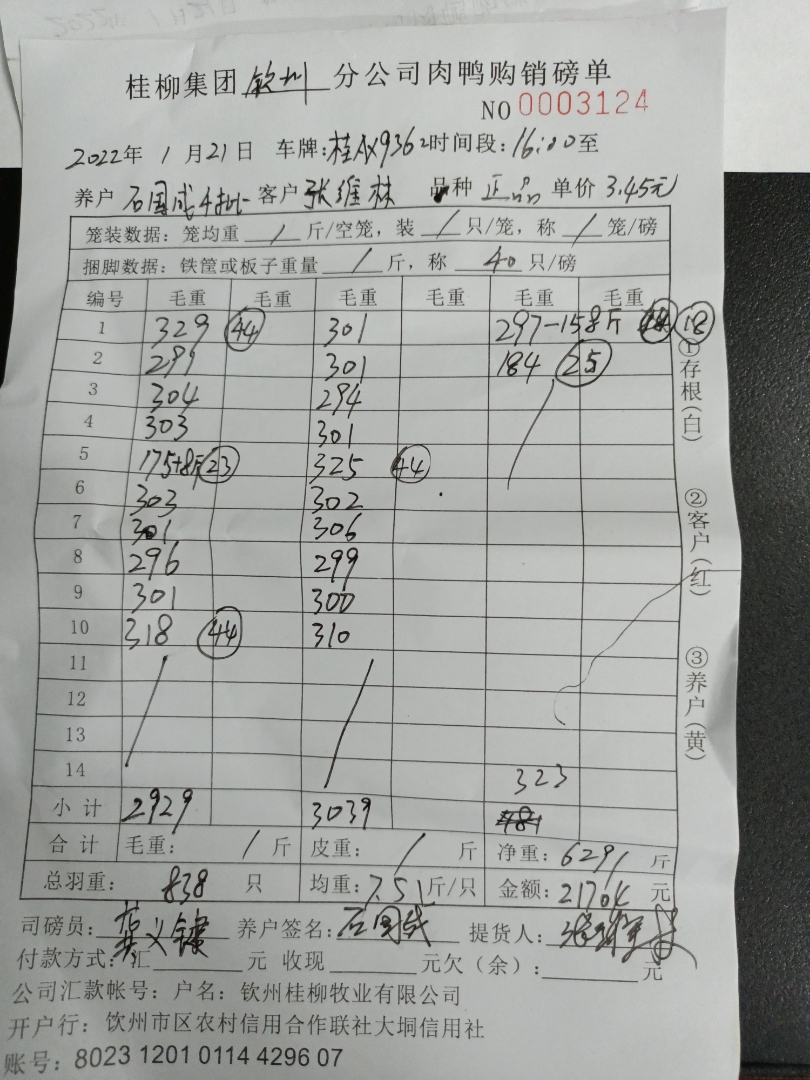 桂柳集团 钦州 分公司肉鸭购销磅单
NO 0003124
2022年 1月21日 车牌:桂 9362 时间段:16:00至
养户 石国成4批 客户 张维林 品种 正品 单价 3.45元
笼装数据:笼均重 / 斤/空笼,装 / 只/笼,称 / 笼/磅
捆脚数据:铁筐或板子重量 / 斤,称 40 只/磅
编号 毛重 毛重 毛重 毛重 毛重 毛重
1 329 44 301 297-158斤 18
2 299 301 184 25
3 304 294
4 303 301
5 175+8斤 23 325 44
6 303 302
7 301 306
8 296 299
9 301 300
10 318 44 310
11
12
13
14 323
小计 2929 3039 481
合计 毛重: / 斤 皮重: / 斤 净重:6291 斤
总羽重: 838 只 均重:7.51斤/只 金额:21704 元
司磅员: 养户签名:石国成 提货人:
付款方式:汇 元 收现 元欠(余):元
公司汇款帐号:户名:钦州桂柳牧业有限公司
开户行:饮州市区农村信用合作联社大垌信用社
账号:8023 1201 0114 4296 07
①存根(白)
②客户(红)
③养户(黄)